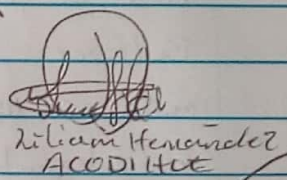 Lilian Hernández
ACODIHUE